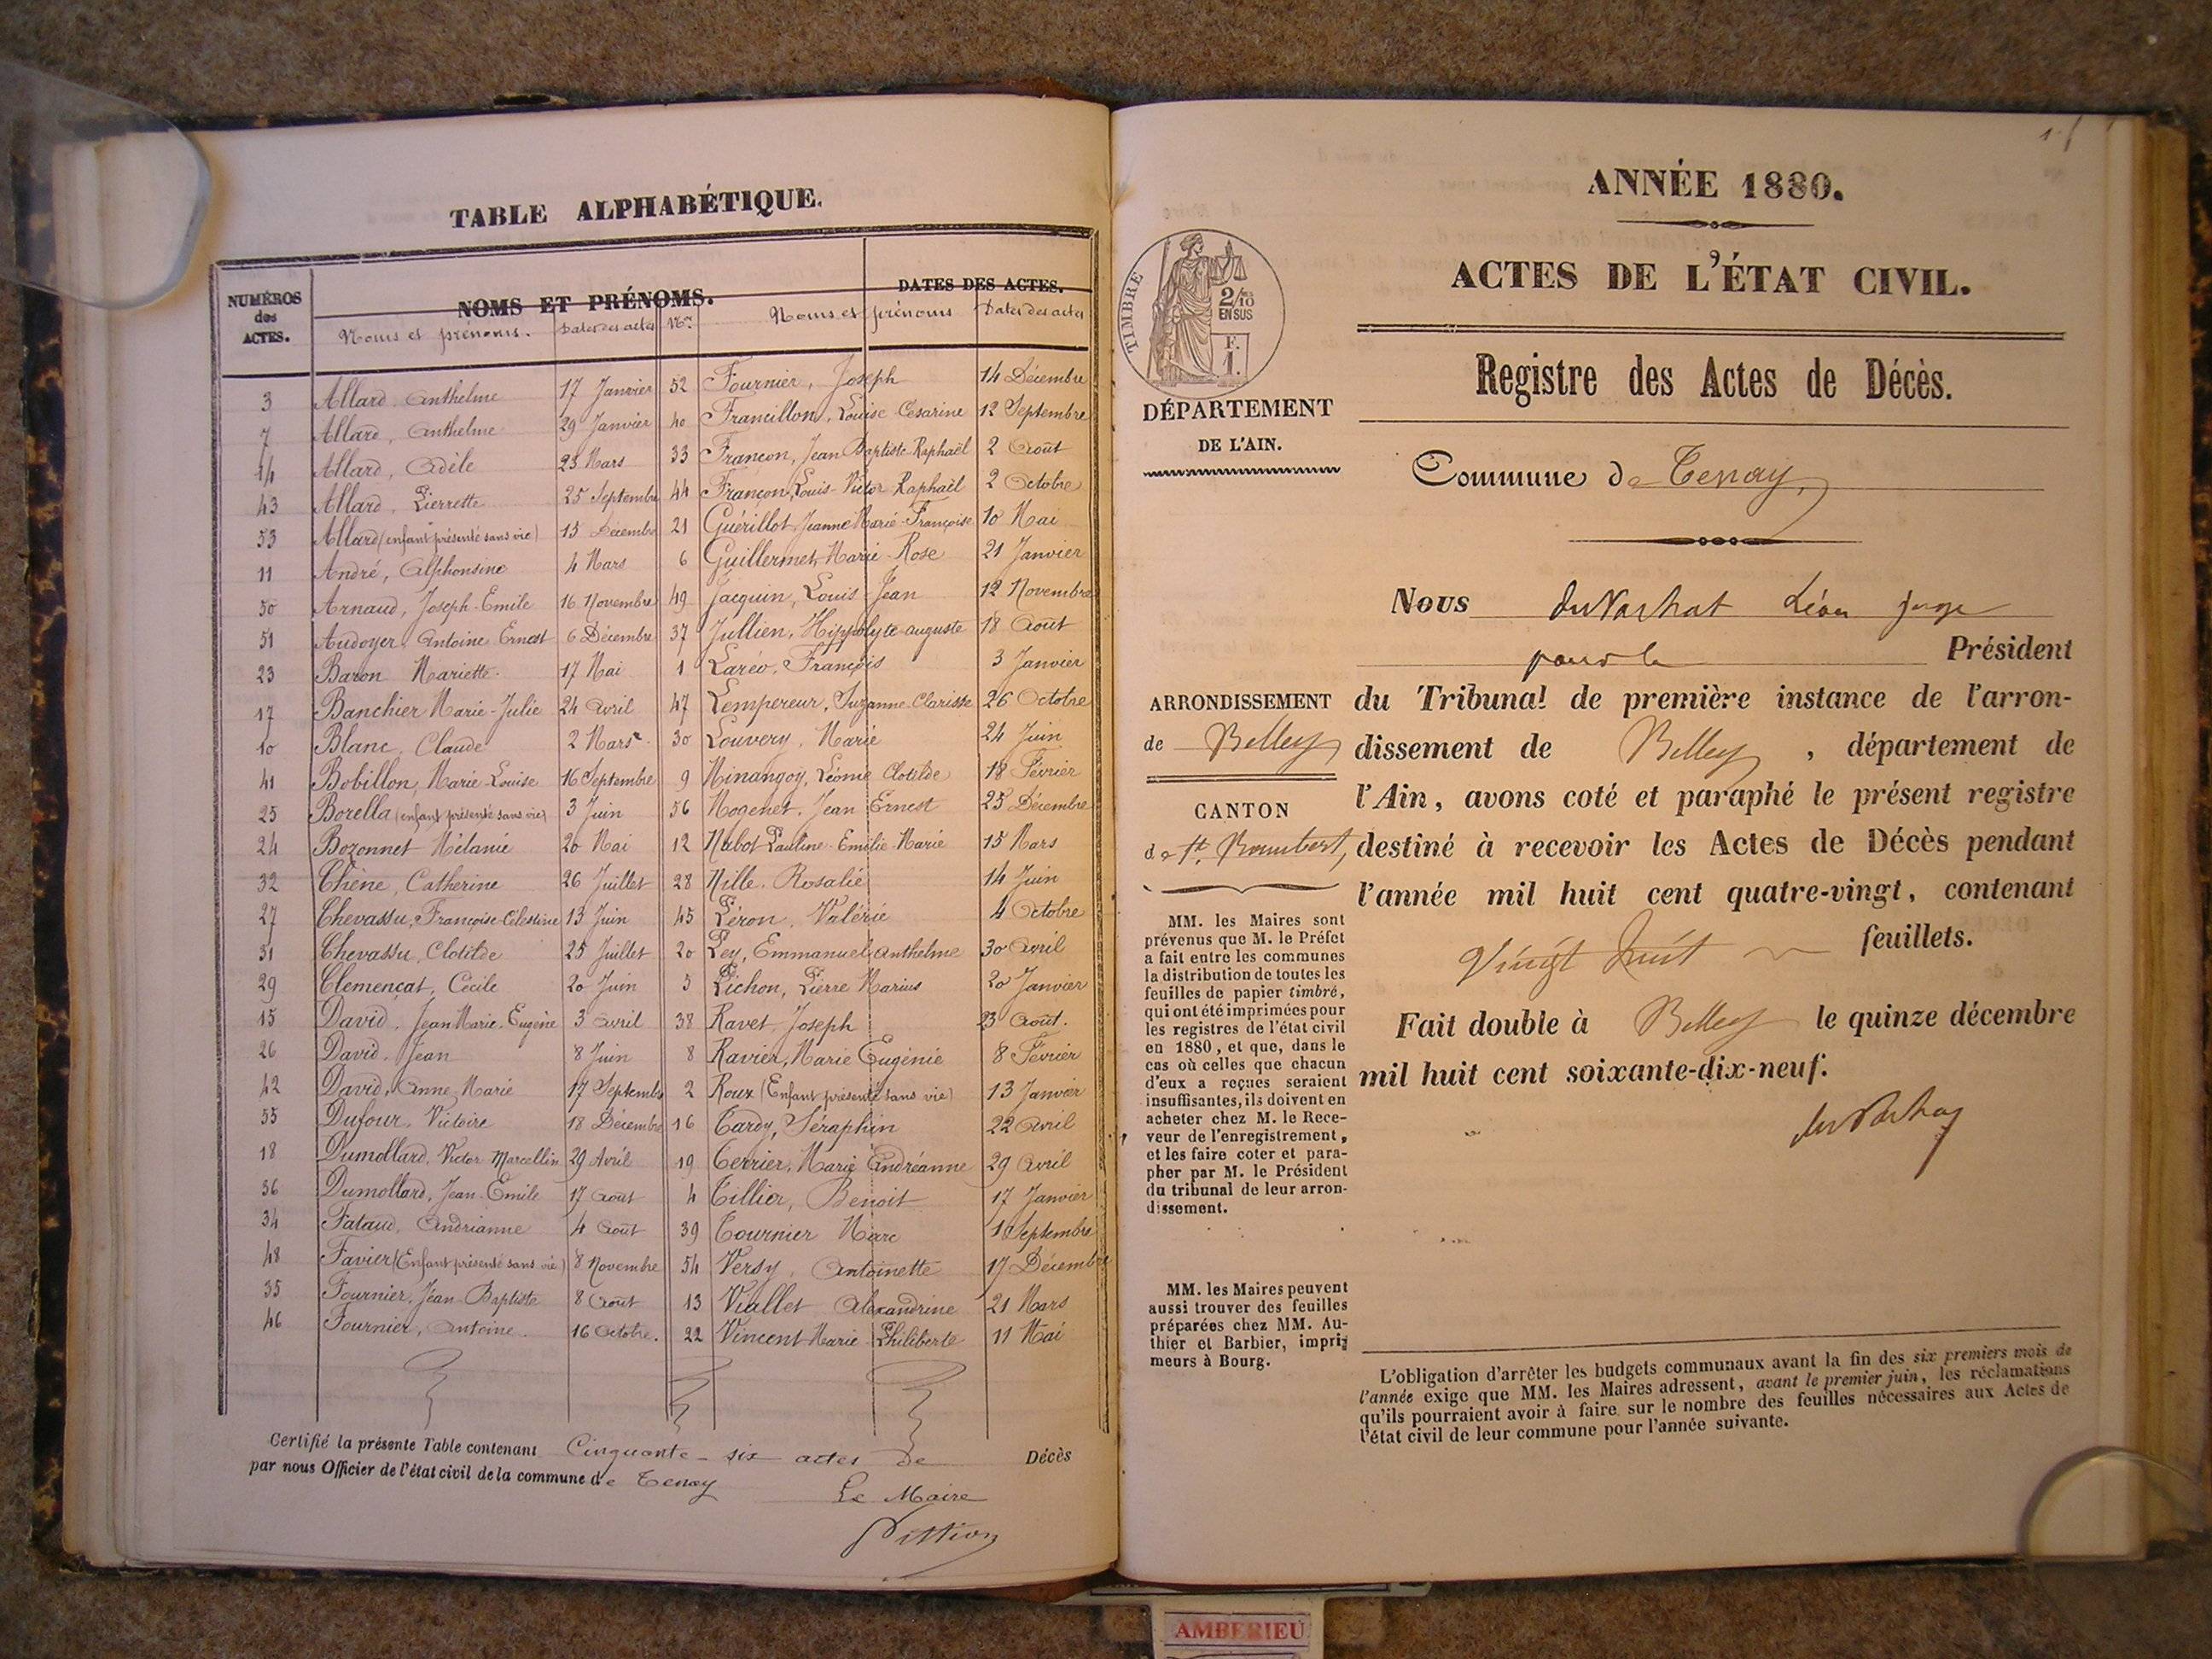 TABLE ALPHABÉTIQUE.
NUMÉROS des ACTES.
NOMS ET PRÉNOMS.
DATES DES ACTES.
Noms et prénoms. Dates des actes Nos Noms et prénoms Dates des actes
3 Allard Anthelme 17 Janvier 52 Fournier, Joseph 14 Décembre
7 Allard, Anthelme 29 Janvier 40 Francillon, Louise Césarine 12 Septembre
14 Allard, Adèle 23 Mars 33 Françon, Jean Baptiste Raphaël 2 Août
43 Allard, Pierrette 25 Septembre 44 Françon, Louis-Victor Raphaël 2 Octobre
53 Allard (enfant présenté sans vie) 15 Décembre 21 Guérillot Jeanne Marie-Françoise 10 Mai
11 André, Alphonsine 4 Mars 6 Guillermet Marie-Rose 21 Janvier
50 Arnaud, Joseph-Emile 16 Novembre 49 Jacquin, Louis Jean 12 Novembre
51 Audoyer Antoine Ernest 6 Décembre 37 Jullien, Hippolyte auguste 18 Août
23 Baron Mariette. 17 Mai 1 Laréo, François 3 Janvier
17 Banchier Marie-Julie 24 Avril 47 Lempereur, Suzanne-Clarisse 26 Octobre
10 Blanc, Claude 2 Mars 30 Louvery, Marie 24 Juin
41 Bobillon, Marie-Louise 16 Septembre 9 Minangoy, Léonie Clotilde 18 Février
25 Borella (enfant présenté sans vie) 3 Juin 56 Mogenet, Jean Ernest 25 Décembre
24 Bozonnet Mélanie 20 Mai 12 Nabot Pauline-Emélie-Marie 15 Mars
32 Chêne, Catherine 26 Juillet 28 Nille, Rosalie 14 Juin
27 Chevassu, Françoise-Célestine 13 Juin 45 Péron, Valérie 4 Octobre
31 Chevassu, Clotilde 25 Juillet 20 Pey, Emmanuel Anthelme 30 Avril
29 Clemençat, Cécile 20 Juin 5 Pichon, Pierre Marius 20 Janvier
15 David, Jean Marie-Eugène 3 Avril 38 Ravet, Joseph 23 Août.
26 David, Jean 8 Juin 8 Ravier, Marie Eugénie 8 Février
42 David, Anne Marie 17 Septembre 2 Roux (Enfant présenté sans vie) 13 Janvier
55 Dufour, Victoire 18 Décembre 16 Tardy, Séraphin 22 Avril
18 Dumollard, Victor Marcellin 29 Avril 19 Terrier, Marie Andréanne 29 Avril
36 Dumollard, Jean-Emile 17 Août 4 Tillier, Benoit 17 Janvier
34 Fataud, Andrianne 4 Août 39 Tournier Marc 1 Septembre
48 Favier (Enfant présenté sans vie) 8 Novembre 54 Versy, Antoinette 17 Décembre
35 Fournier, Jean-Baptiste 8 Août 13 Viallet Alexandrine 21 Mars
46 Fournier, Antoine. 16 Octobre. 22 Vincent Marie-Philiberte 11 Mai
Certifié la présente Table contenant Cinquante-six actes de Décès
par nous Officier de l'état civil de la commune de Tenay
Le Maire
Pittion
1
ANNÉE 1880.
ACTES DE L'ÉTAT CIVIL.
TIMBRE
2/10
EN SUS
F.
1.
Registre des Actes de Décès.
DÉPARTEMENT
DE L'AIN.
Commune de Tenay,
Nous Léon juge
pour le Président
du Tribunal de première instance de l'arron-
dissement de Belley, département de
l'Ain, avons coté et paraphé le présent registre
destiné à recevoir les Actes de Décès pendant
l'année mil huit cent quatre-vingt, contenant
Vingt huit feuillets.
Fait double à Belley le quinze décembre
mil huit cent soixante-dix-neuf.
ARRONDISSEMENT
de Belley
CANTON
de St. Rambert,
MM. les Maires sont
prévenus que M. le Préfet
a fait entre les communes
la distribution de toutes les
feuilles de papier timbré,
qui ont été imprimées pour
les registres de l'état civil
en 1880, et que, dans le
cas où celles que chacun
d'eux a reçues seraient
insuffisantes, ils doivent en
acheter chez M. le Rece-
veur de l'enregistrement,
et les faire coter et para-
pher par M. le Président
du tribunal de leur arron-
dissement.
MM. les Maires peuvent
aussi trouver des feuilles
préparées chez MM. Au-
thier et Barbier, impri-
meurs à Bourg.
L'obligation d'arrêter les budgets communaux avant la fin des six premiers mois de
l'année exige que MM. les Maires adressent, avant le premier juin, les réclamations
qu'ils pourraient avoir à faire sur le nombre des feuilles nécessaires aux Actes de
l'état civil de leur commune pour l'année suivante.
AMBERIEU